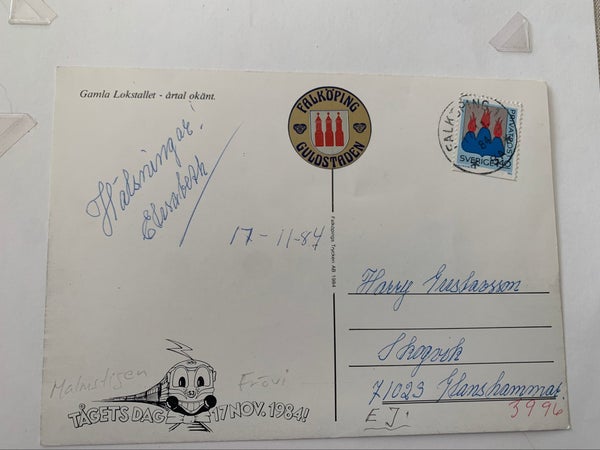 Gamla Lokstallet - årtal okänt.
FALKÖPING
GULDSTADEN
SVERIGE 140
Hälsningar!
Elisabeth
17-11-84
Falköpings Tryckeri AB 1984
Harry Gustavsson
Skogvik
71023 Glanshammar.
3996
E J:
Malmstigen
Frövi
TÅGETS DAG 17 NOV. 1984!